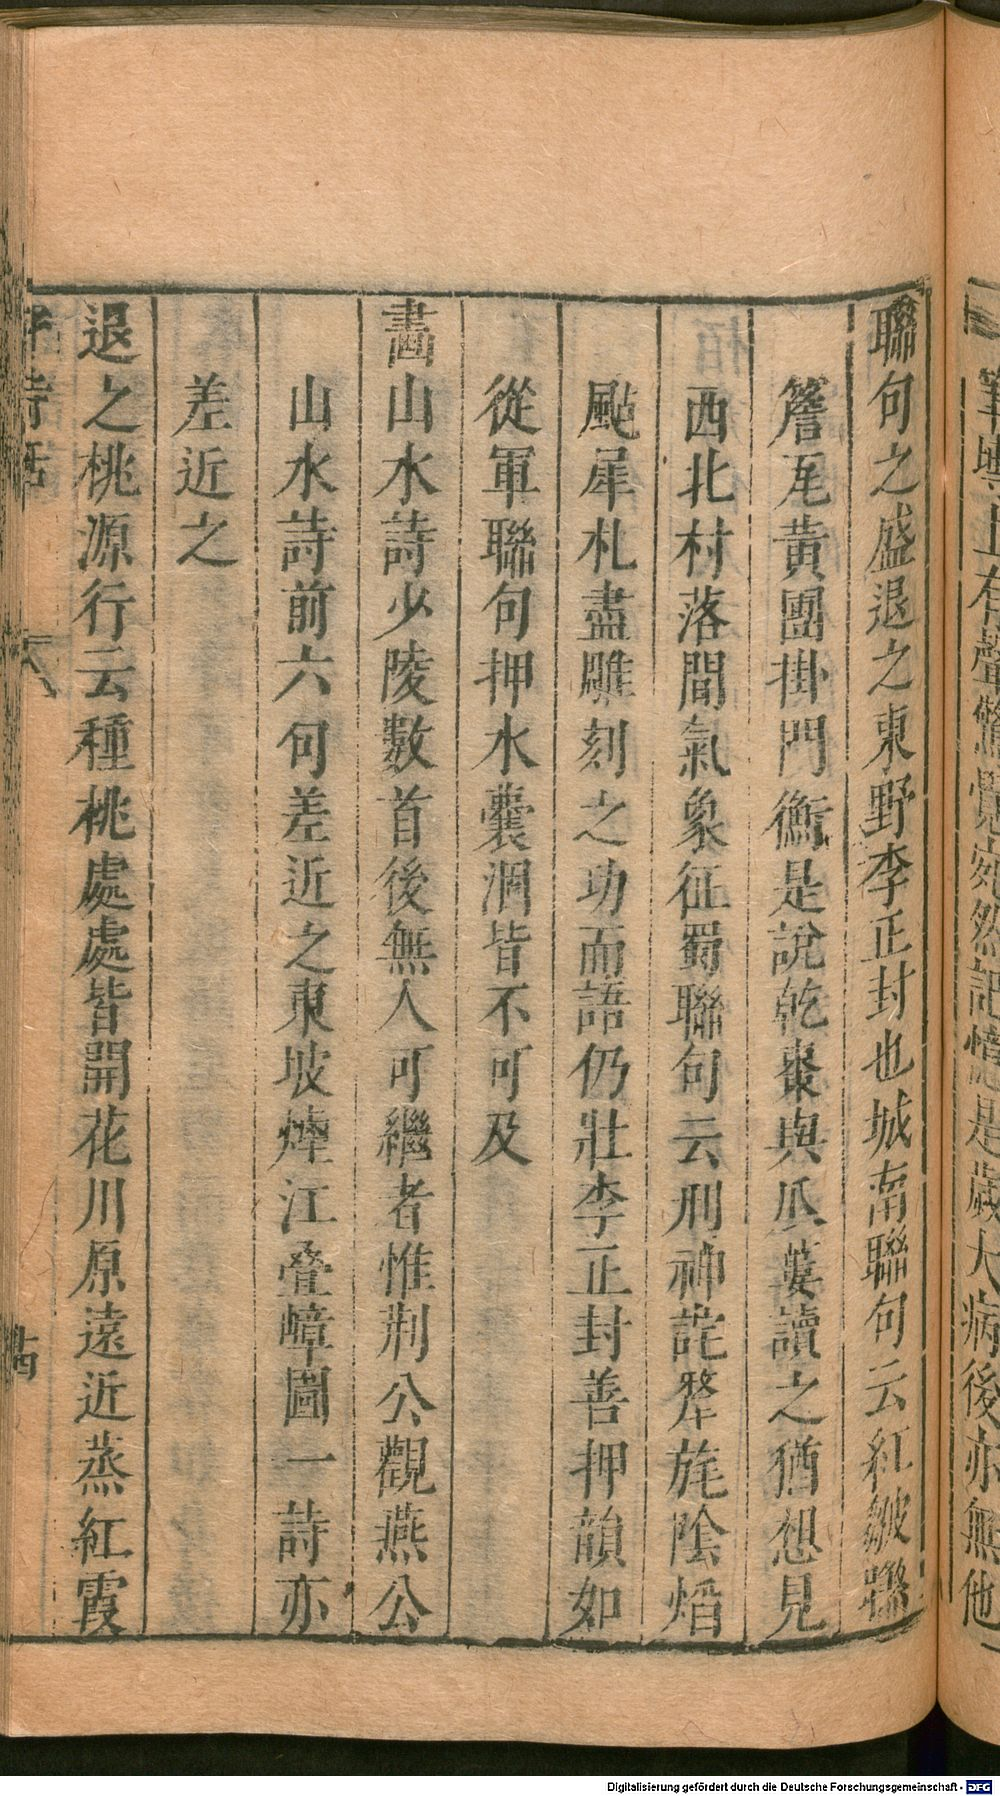 筆𡬶上有聲驚覺宛然記憶是歲大病後亦無他
聯句之盛退之東野李正封也城南聯句云紅皺曬
簷瓦黃團掛門衡是說乾棗與瓜蔞讀之猶想見
西北村落間氣象征蜀聯句云刑神詫犛旄陰焰
颭犀札盡雕刻之功而語仍壯李正封善押韻如
從軍聯句押水囊涸皆不可及
畵山水詩少陵數首後無人可繼者惟荆公觀燕公
山水詩前六句差近之東坡煙江疊嶂圖一詩亦
差近之
退之桃源行云種桃處處皆開花川原遠近蒸紅霞
詩話
Digitalisierung gefördert durch die Deutsche Forschungsgemeinschaft - DFG